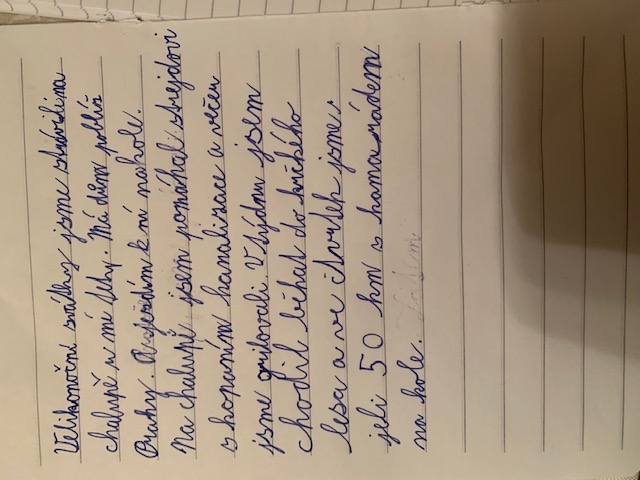 Velikonoční svátky jsme strávili na
chalupě u mí tety. Má dům poblíž
Prahy. A jezdím k ní na kole.
Na chalupě jsem pomáhal strejdovi
s kopáním kanalizace a večer
jsme grilovali. V týdnu jsem
chodil běhat do krčkého
lesa a ve čtvrtek jsme
jeli 50 km s kamarádem
na kole.